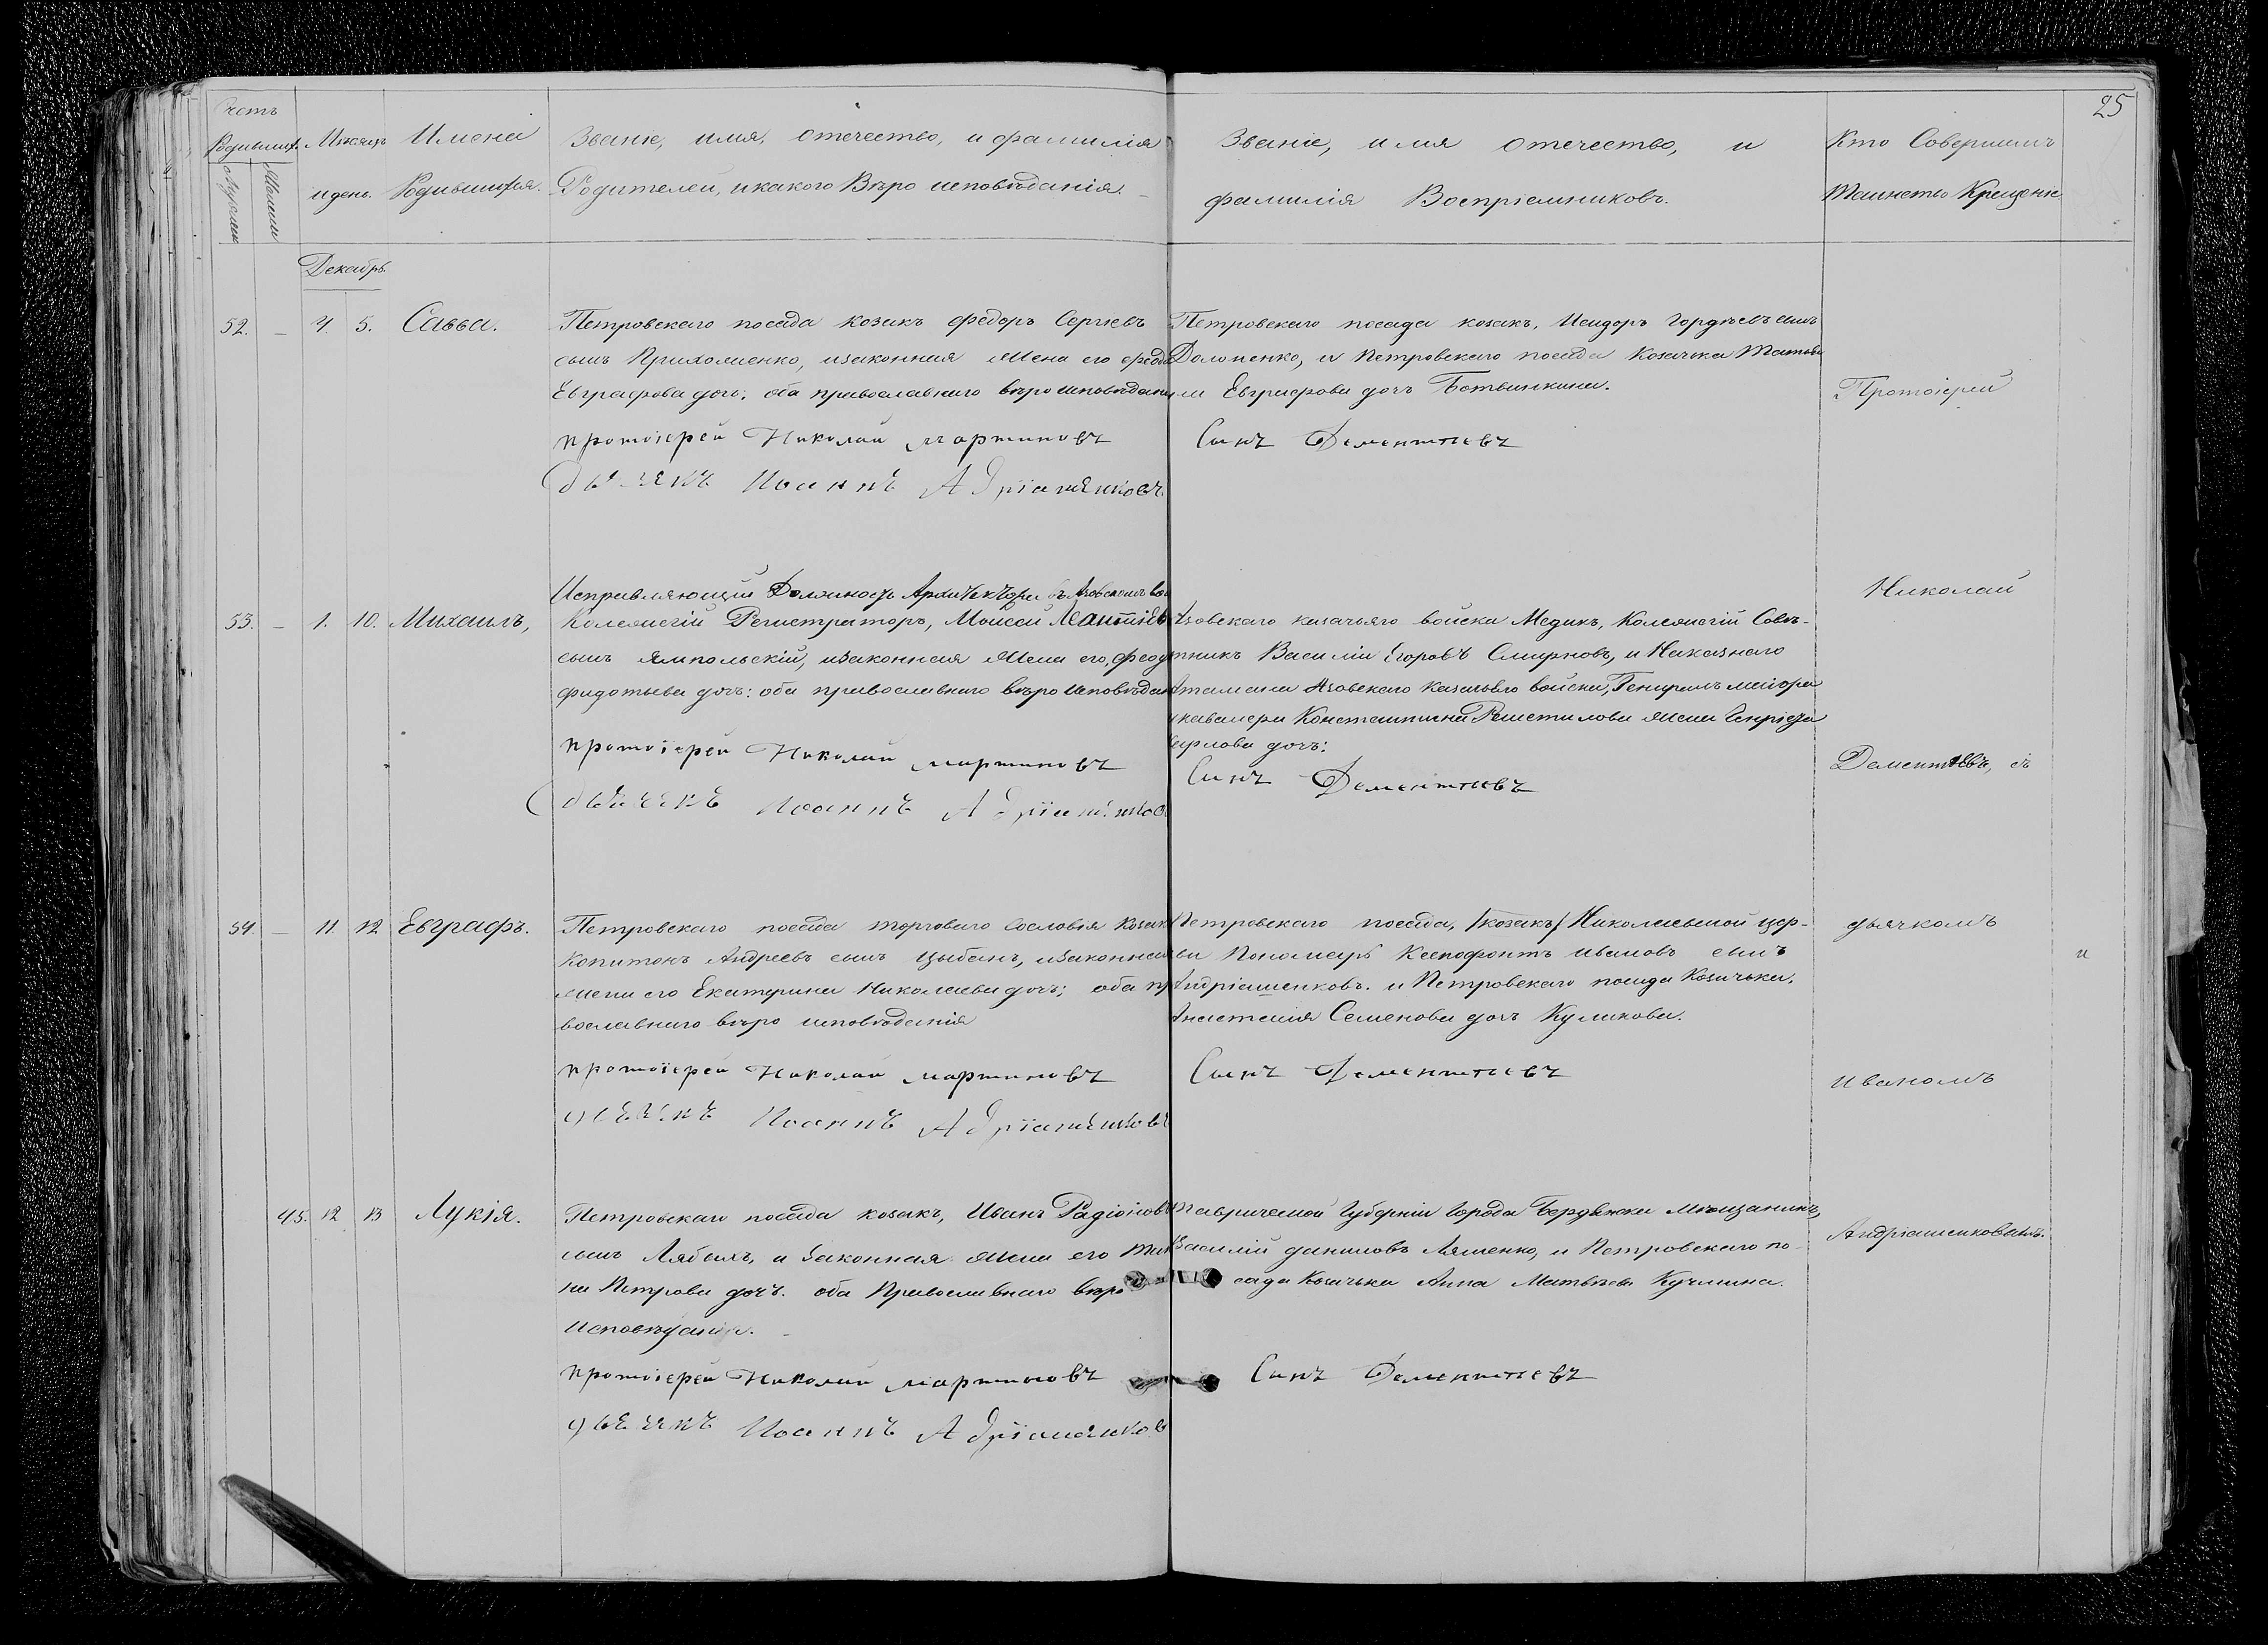 25
Родившихся Мѣсяцъ Имена Званіе, имя, отечество, и фамилія
и день. Родившихся. Родителей, и какого Вѣро исповѣданія.
Званіе, имя отечество, и
фамилія Воспріемниковъ.
Кто Совершилъ
Таинство Крещеніе
Декабрь
52. — 4 5. Савва.
Петровскаго посада козакъ Федоръ Сергіевъ
сынъ Прихоменко, изаконная жена его
Евграфова дочь; оба православнаго вѣро
протоіерей Николай Мартиновъ
Иоаннъ
Петровскаго посада козакъ, Исидоръ Гордѣевъ сынъ
и Петровскаго посада козачка
Евграфова дочь Ботвинкина.
Сынъ Дементіевъ
Протоіерей
53. — 1. 10. Михаилъ,
Исправляющій Должность Архитектора въ Азовскомъ
Колежскій Регистраторъ, Моисей
сынъ Ямпольскій, изаконная жена его,
дочь: оба православнаго вѣро
протоіерей Николай Мартиновъ
Иоаннъ
Азовскаго казачьяго войска Медикъ, Колежскій Совѣ-
тникъ Василій Егоровъ Смирновъ, и Наказнаго
Атамана Азовскаго казачьяго войска, Генералъ маіора
икавалера Константина Решетилова жена Генріета
Карлова дочь:
Сынъ Дементіевъ
Николай
Дементіевъ, съ
54. — 11. 12 Евграфъ.
Петровскаго посада торговаго сословія
Копитонъ Андреевъ сынъ Цыбань, изаконная
жена его Екатерина Николаева дочь; оба пра
вославнаго вѣро исповѣданія
протоіерей Николай Мартиновъ
Иоаннъ
Петровскаго посада, /козакъ/ Николаевской цер-
кви Пономарь Ксенофонтъ Ивановъ сынъ
Андріашенковъ. и Петровскаго посада Козачька,
Анастасія Семенова дочь Куликова.
Сынъ Дементіевъ
дьячкомъ
и
Иваномъ
45. 12 13 Лукія.
Петровскаго посада козакъ, Иванъ
сынъ Лябахъ, и законная жена его
на Петрова дочь. оба Православнаго вѣро
исповѣданія.
протоіерей Николай Мартиновъ
Иоаннъ
Таврической Губерніи города Бердянска мѣщанинъ,
Василій Даниловъ Ляшенко, и Петровскаго по-
сада Козачька Анна Матвѣева Кучмина.
Сынъ Дементіевъ
Андріашенковымъ.